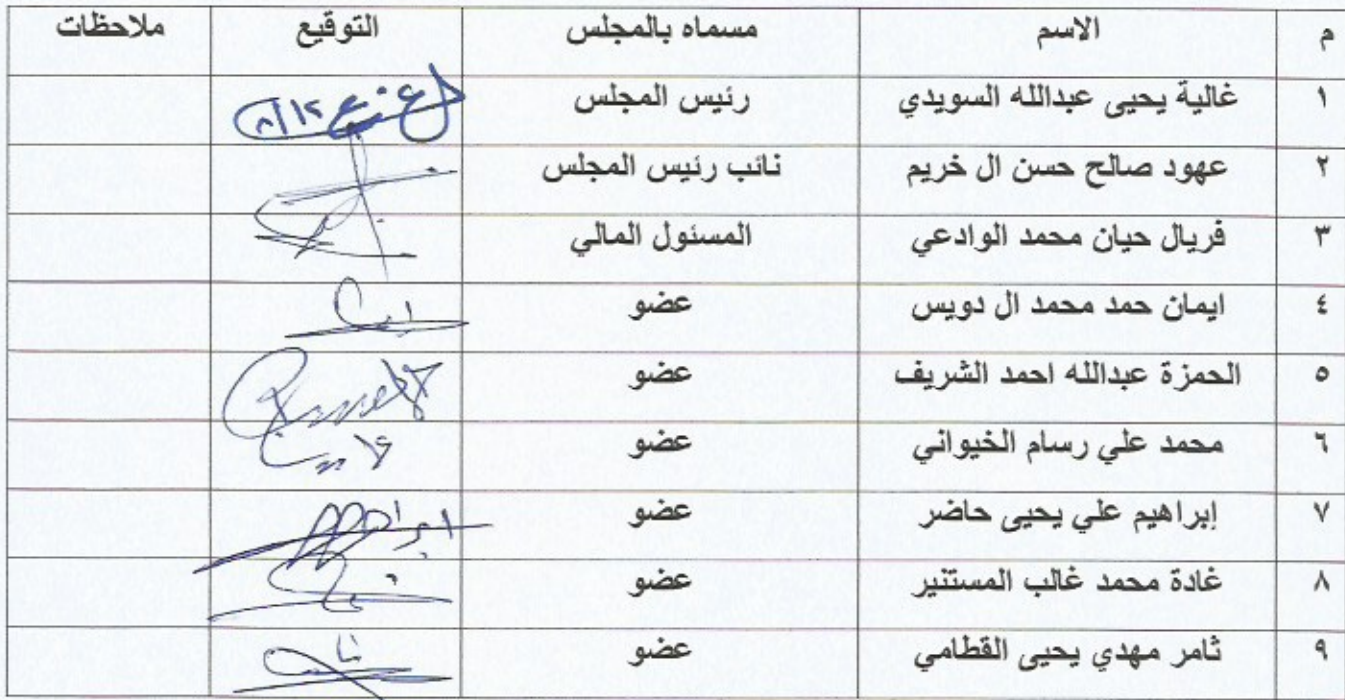 م الاسم مسماه بالمجلس التوقيع ملاحظات
١ غالية يحيى عبدالله السويدي رئيس المجلس
٢ عهود صالح حسن ال خريم نائب رئيس المجلس
٣ فريال حبان محمد الوادعي المسئول المالي
٤ ايمان حمد محمد ال دويس عضو
٥ الحمزة عبدالله احمد الشريف عضو
٦ محمد علي رسام الخيواني عضو
٧ إبراهيم علي يحيى حاضر عضو
٨ غادة محمد غالب المستنير عضو
٩ ثامر مهدي يحيى القطامي عضو